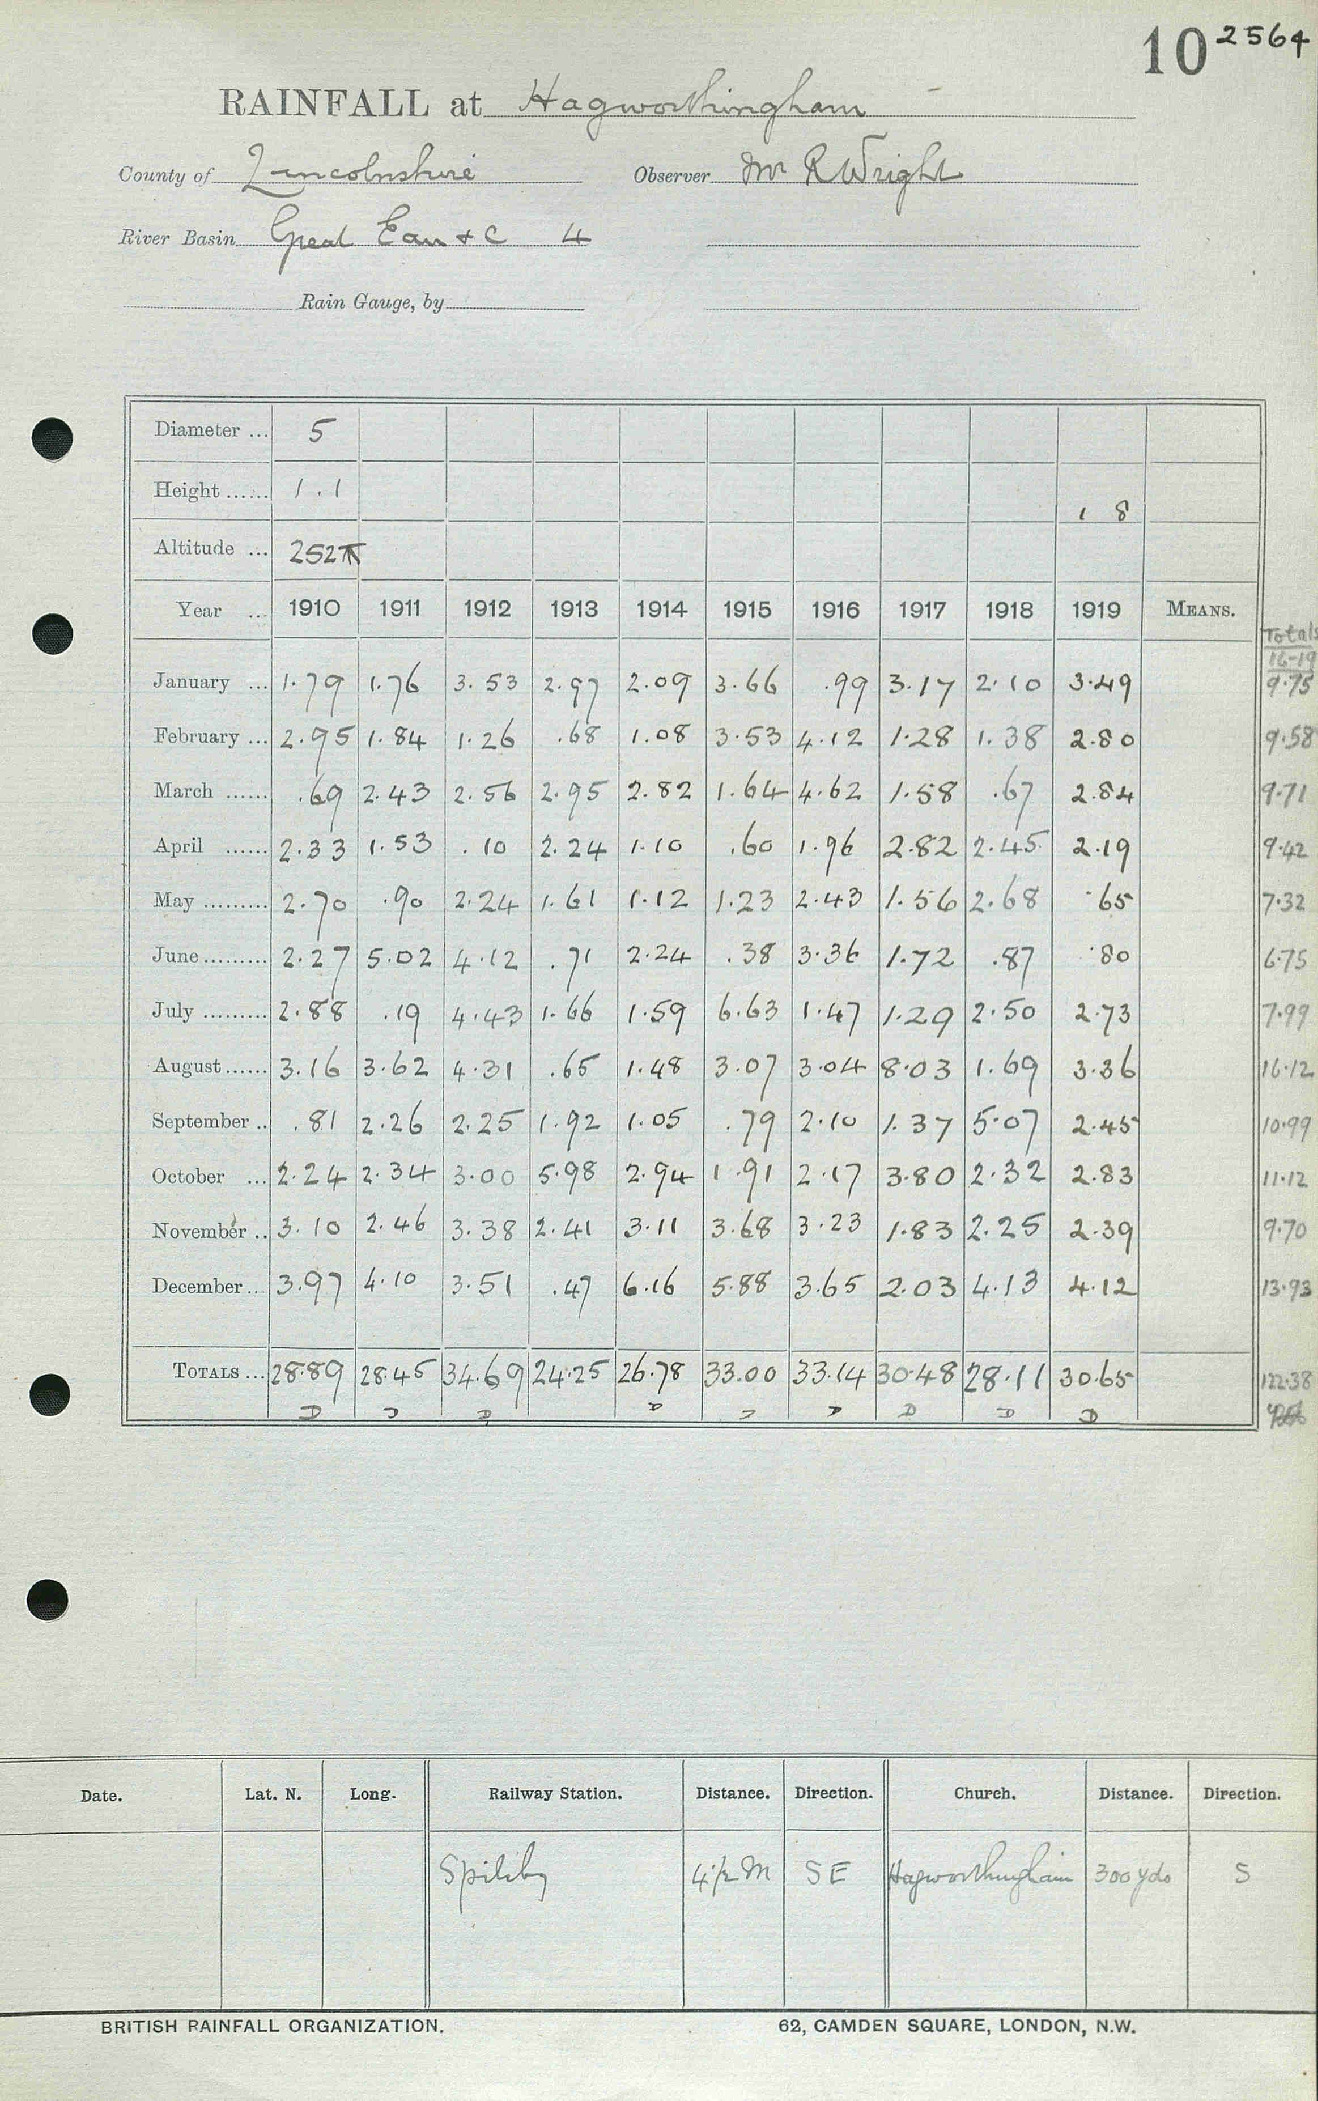 10 2564
RAINFALL at Hagworthingham
County of Lincolnshire Observer Mr R Wright
River Basin Great Eau & C 4
Rain Gauge, by
Diameter ... 5
Height ...... 1.1 1 8
Altitude ... 252
Year ... 1910 1911 1912 1913 1914 1915 1916 1917 1918 1919 MEANS. Totals 16-19
January ... 1.79 1.76 3.53 2.97 2.09 3.66 .99 3.17 2.10 3.49 9.75
February ... 2.95 1.84 1.26 .68 1.08 3.53 4.12 1.28 1.38 2.80 9.58
March ...... .69 2.43 2.56 2.95 2.82 1.64 4.62 1.58 .67 2.84 9.71
April ...... 2.33 1.53 .10 2.24 1.10 .60 1.96 2.82 2.45 2.19 9.42
May ......... 2.70 .90 2.24 1.61 1.12 1.23 2.43 1.56 2.68 .65 7.32
June ......... 2.27 5.02 4.12 .71 2.24 .38 3.36 1.72 .87 .80 6.75
July ......... 2.88 .19 4.43 1.66 1.59 6.63 1.47 1.29 2.50 2.73 7.99
August ...... 3.16 3.62 4.31 .65 1.48 3.07 3.04 8.03 1.69 3.36 16.12
September .. .81 2.26 2.25 1.92 1.05 .79 2.10 1.37 5.07 2.45 10.99
October ... 2.24 2.34 3.00 5.98 2.94 1.91 2.17 3.80 2.32 2.83 11.12
November .. 3.10 2.46 3.38 2.41 3.11 3.68 3.23 1.83 2.25 2.39 9.70
December ... 3.97 4.10 3.51 .47 6.16 5.88 3.65 2.03 4.13 4.12 13.93
TOTALS ... 28.89 28.45 34.69 24.25 26.78 33.00 33.14 30.48 28.11 30.65 122.38
D D D D D D D D D
Date. Lat. N. Long. Railway Station. Distance. Direction. Church. Distance. Direction.
Spilsby 4 1/2 M SE Hagworthingham 300 yds S
BRITISH RAINFALL ORGANIZATION. 62, CAMDEN SQUARE, LONDON, N.W.